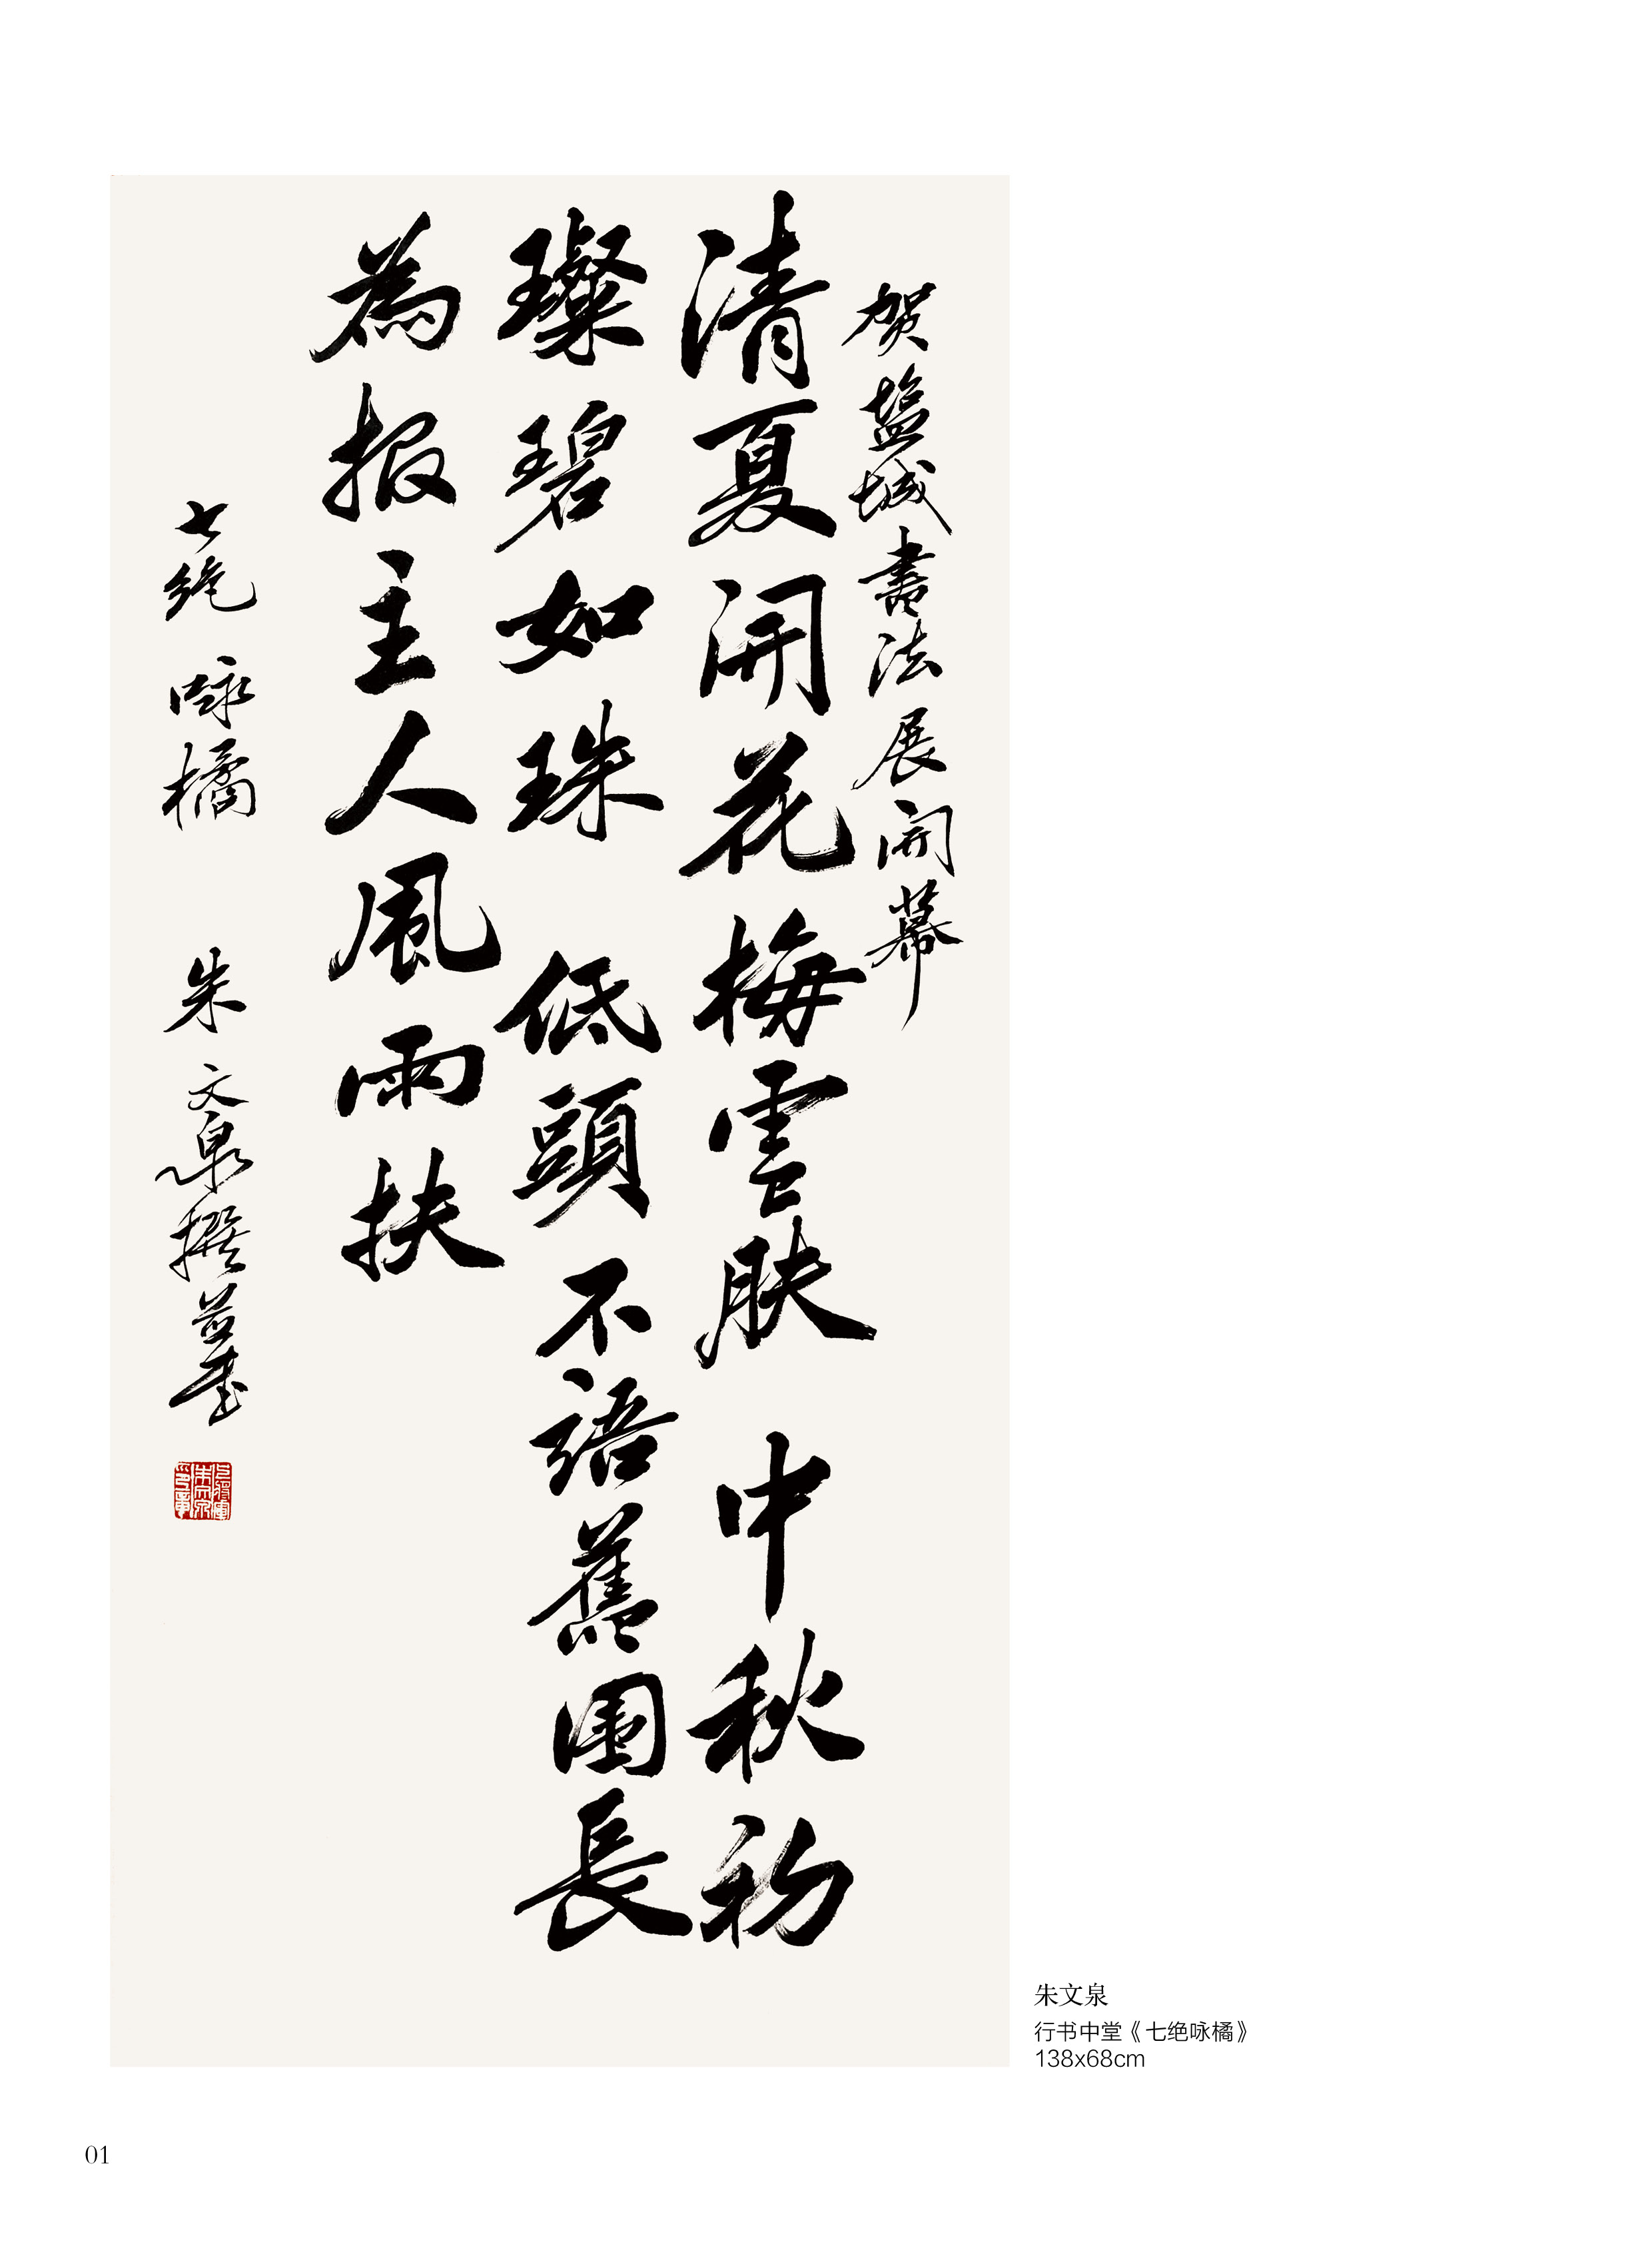 贺盐城書法展開幕
清夏開花梅雲肤 中秋初
璨碧如珠 低頭不語舊園長
為报主人風雨扶
七绝 咏橘 朱文泉撰並书
朱文泉
行书中堂《七绝咏橘》
138x68cm
01